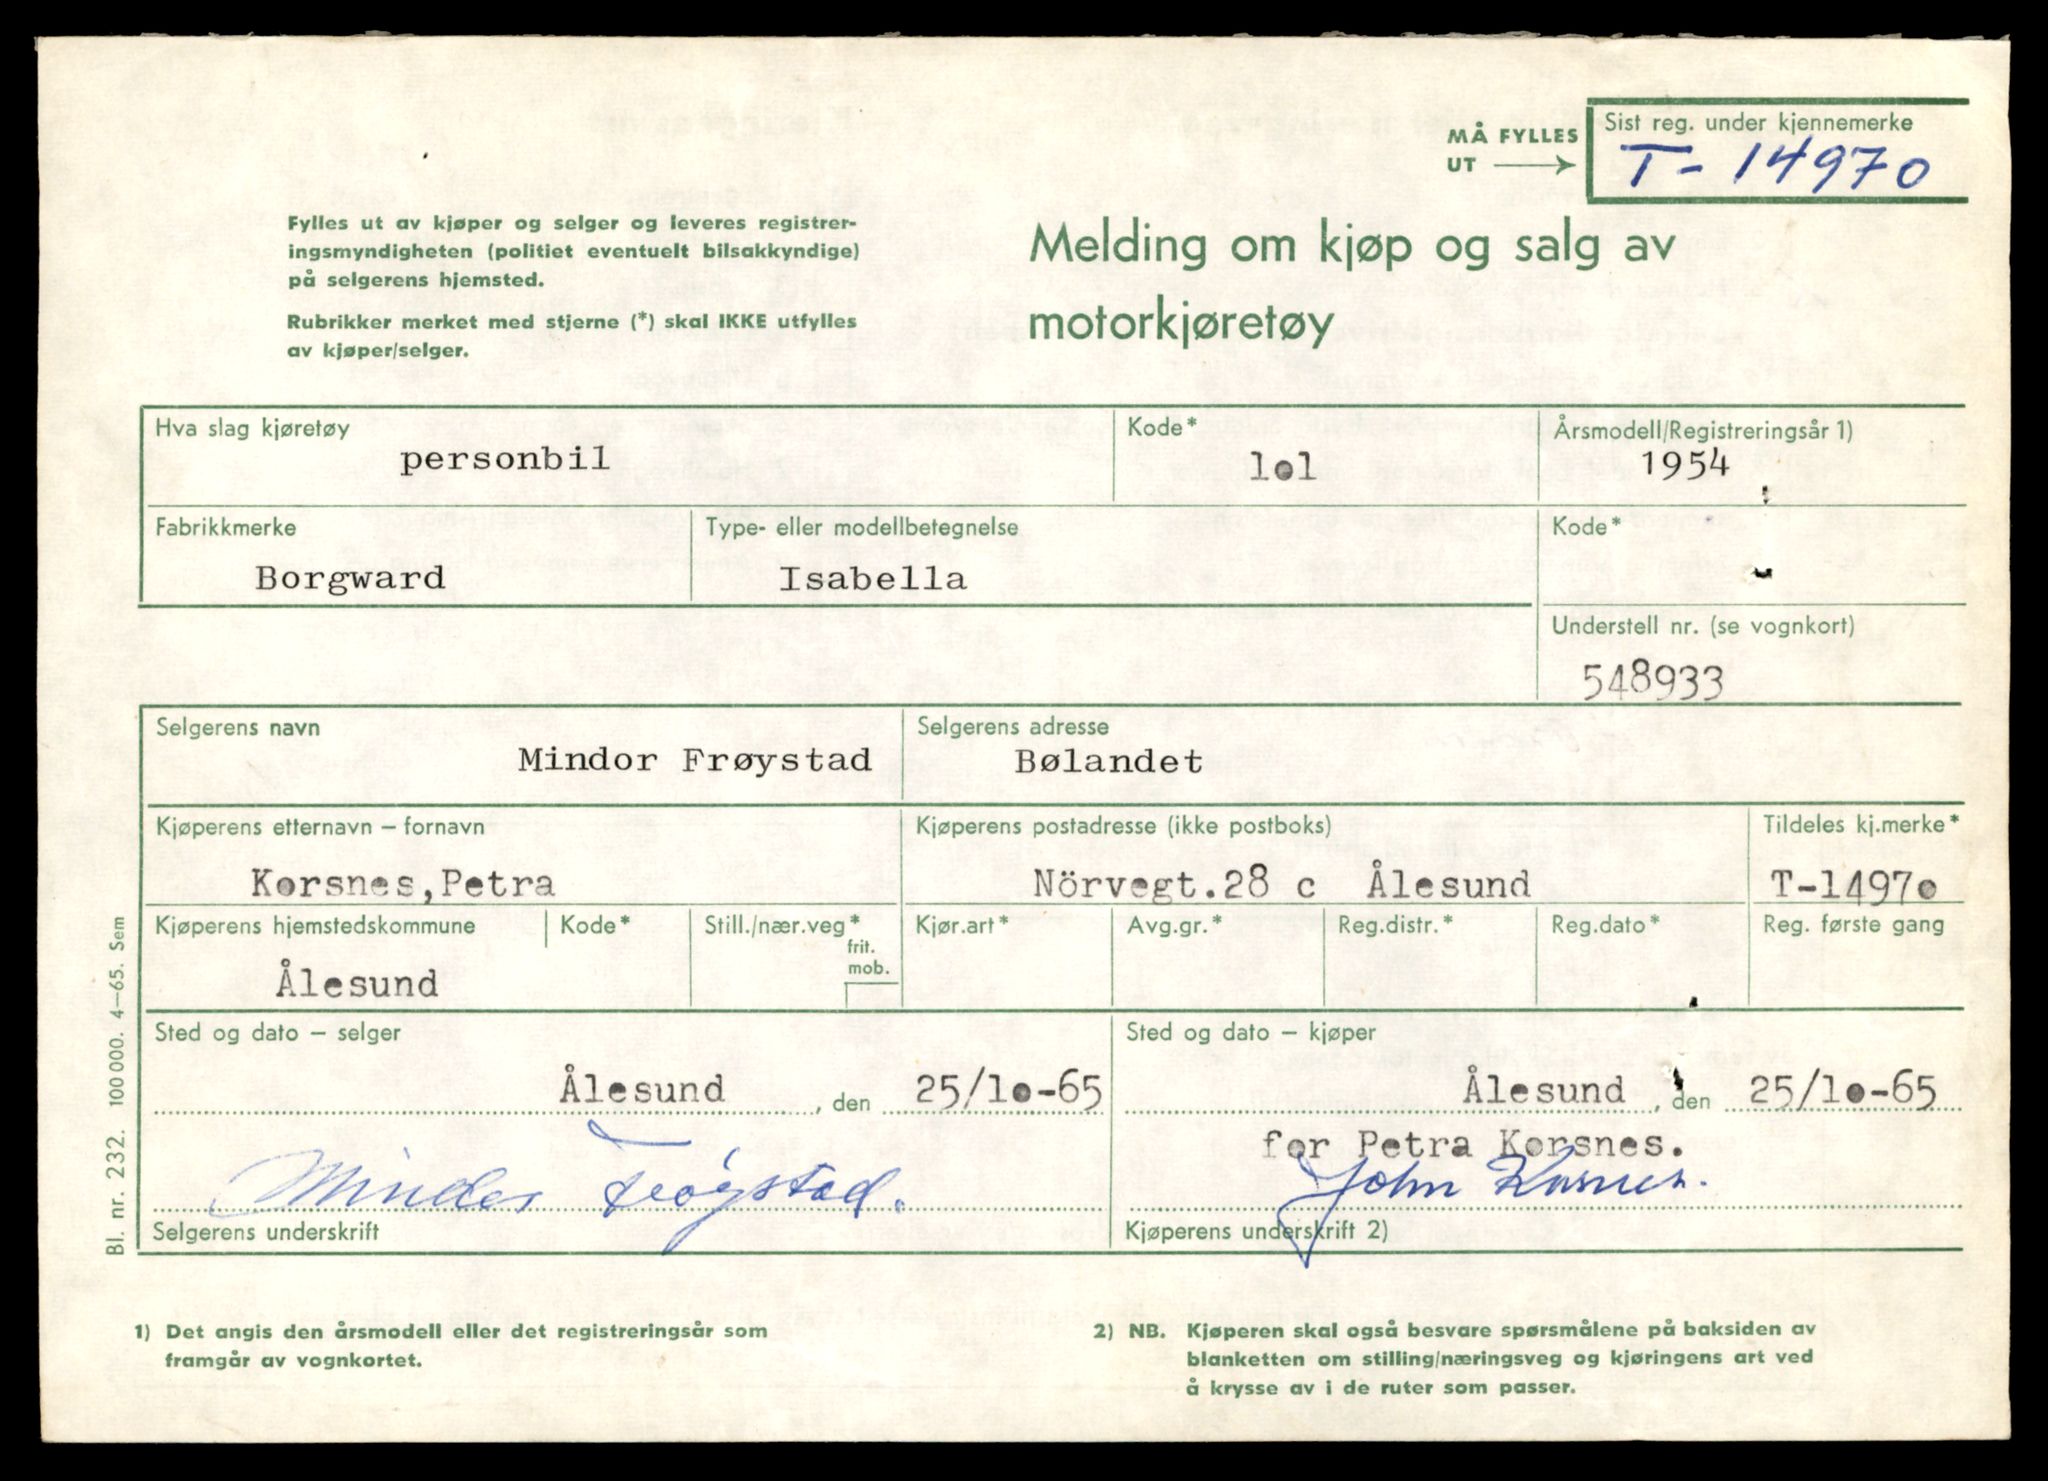 MÅ FYLLES
UT
Sist reg. under kjennemerke
T - 14970
Fylles ut av kjøper og selger og leveres registrer-
ingsmyndigheten (politiet eventuelt bilsakkyndige)
på selgerens hjemsted.
Rubrikker merket med stjerne (*) skal IKKE utfylles
av kjøper/selger.
Melding om kjøp og salg av
motorkjøretøy
Hva slag kjøretøy
personbil
Kode*
lol
Årsmodell/Registreringsår 1)
1954
Fabrikkmerke
Borgward
Type- eller modellbetegnelse
Isabella
Kode*
Understell nr. (se vognkort)
548933
Selgerens navn
Mindor Frøystad
Selgerens adresse
Bølandet
Kjøperens etternavn – fornavn
Korsnes, Petra
Kjøperens postadresse (ikke postboks)
Nörvegt.28 c Ålesund
Tildeles kj.merke*
T-1497o
Kjøperens hjemstedskommune
Ålesund
Kode*
Still./nær.veg*
frit.
mob.
Kjør.art*
Avg.gr.*
Reg.distr.*
Reg.dato*
Reg. første gang
Sted og dato – selger
Ålesund, den 25/1o-65
Mindor Frøystad.
Selgerens underskrift
Sted og dato – kjøper
Ålesund, den 25/1o-65
for Petra Korsnes.
John Korsnes.
Kjøperens underskrift 2)
Bl. nr. 232. 100 000. 4–65. Sem
1) Det angis den årsmodell eller det registreringsår som
framgår av vognkortet.
2) NB. Kjøperen skal også besvare spørsmålene på baksiden av
blanketten om stilling/næringsveg og kjøringens art ved
å krysse av i de ruter som passer.